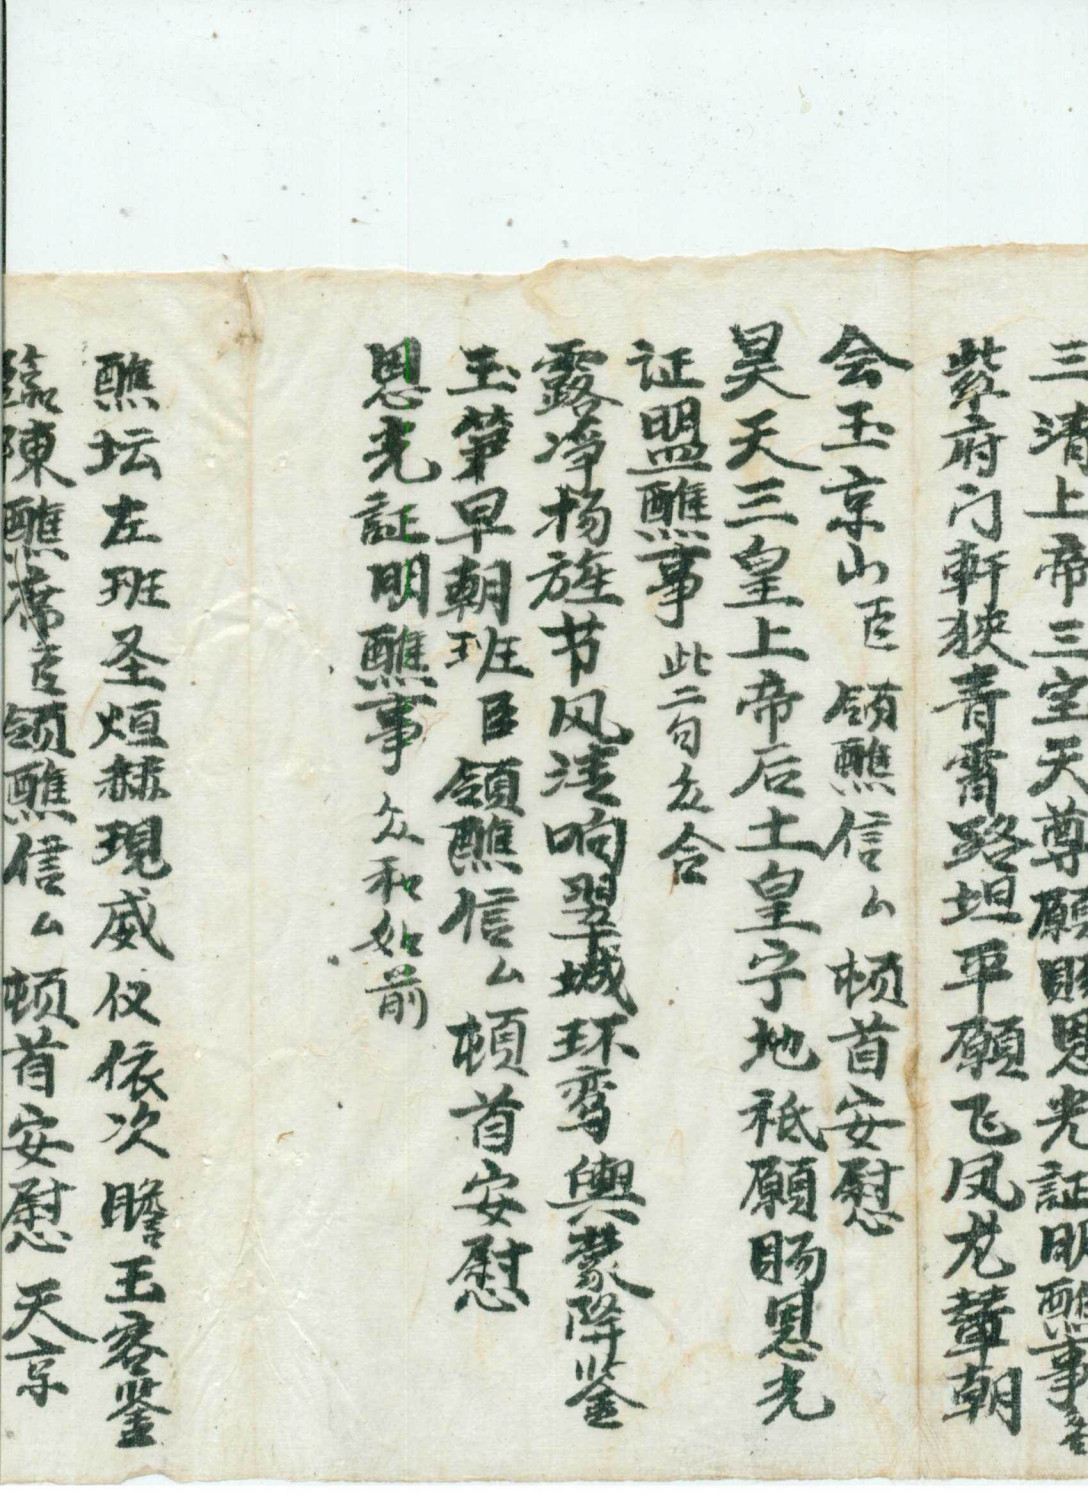 三清上帝三宝天尊願賜恩光証明醮事
紫府门軒狹青霄路坦平願飞凤龙輦朝
会玉京山臣 領醮信厶頓首安慰
昊天三皇上帝后土皇宁地祗願賜恩光
证盟醮事 此二句众合
露淨杨旌节风清响翠城环鸾輿蒙降鉴
玉第早朝班臣領醮信厶頓首安慰
恩光証明醮事 众和如前
醮坛左班圣烜赫現威仪依次瞻玉容鉴
臨陳醮席臣領醮信厶頓首安慰 天京